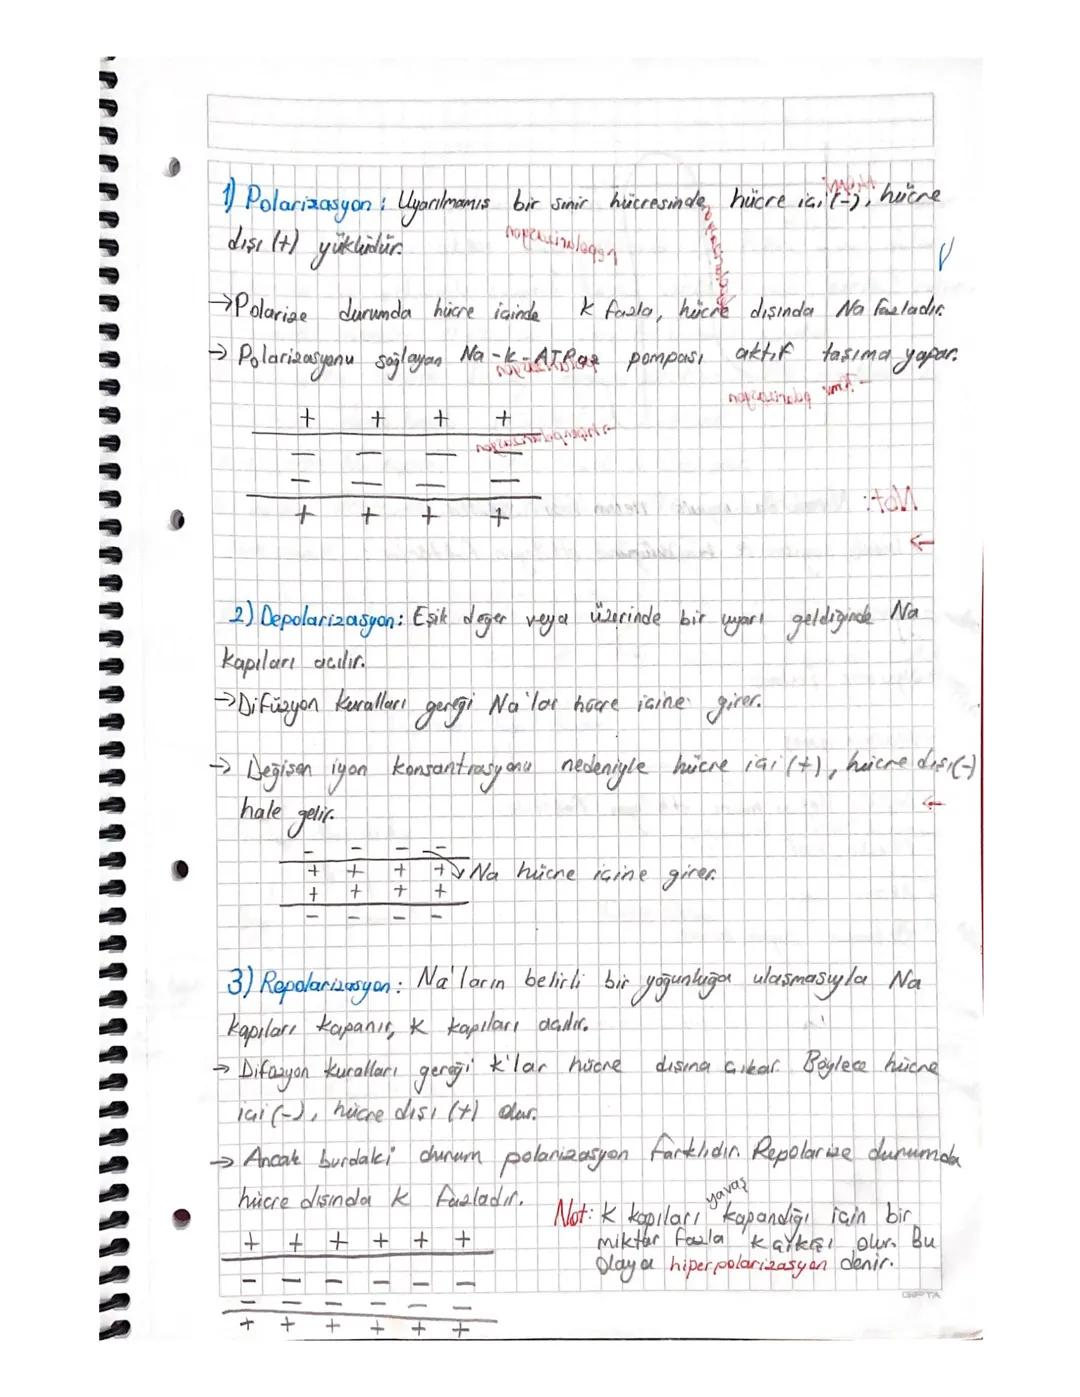 1) Polarizasyon: Uyarılmamış bir sinir hücresinde, hücre içi (-), hücre
dışı (+) yüklüdür.
→Polarize durumda hücre içinde K fazla, hücre dışında Na fazladır.
→ Polarizasyonu sağlayan Na-K-ATPaz pompası aktif taşıma yapar.
+ + + +
— — — —
— — — —
+ + + +
Not:
2) Depolarizasyon: Eşik değer veya üzerinde bir uyarı geldiğinde Na
kapıları açılır.
→Difüzyon kuralları gereği Na'lar hücre içine girer.
→ Değişen iyon konsantrasyonu nedeniyle hücre içi (+), hücre dışı (-)
hale gelir.
- - - -
+ + + + Na hücre içine girer.
+ + + +
- - - -
3) Repolarizasyon: Na'ların belirli bir yoğunluğa ulaşmasıyla Na
kapıları kapanır, K kapıları açılır.
→ Difüzyon kuralları gereği K'lar hücre dışına çıkar. Böylece hücre
içi (-), hücre dışı (+) olur.
→ Ancak burdaki durum polarizasyon farklıdır. Repolarize durumda
hücre dışında K fazladır.
Not: K kapıları yavaş kapandığı için bir
miktar fazla K çıkışı olur. Bu
olaya hiperpolarizasyon denir.
+ + + + + +
- - - - - -
- - - - - -
+ + + + + +